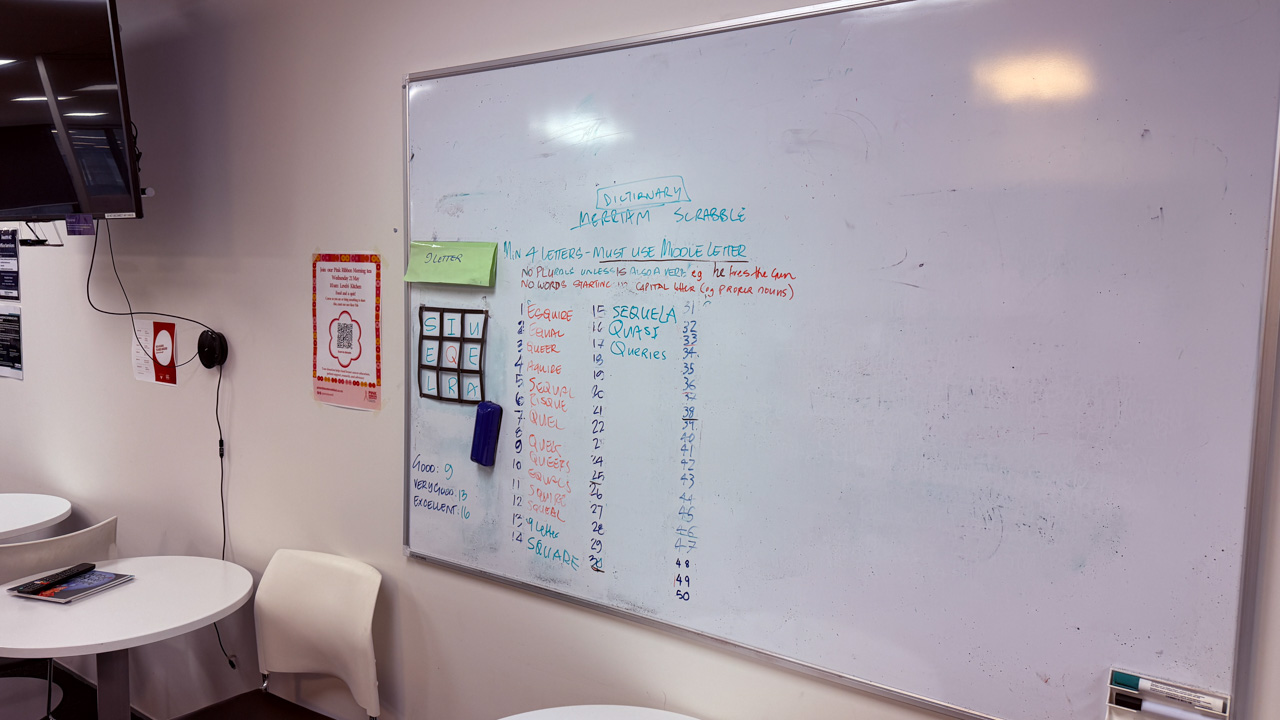 DICTIRNARY
MERRIAM SCRABBLE
9 LETTER
MIN 4 LETTERS - MUST USE MIDDLE LETTER
NO PLURALS UNLESS IS ALSO A VERB eg he fires the Gun
NO WORDS STARTING CAPITAL letter (eg proper nouns)
S I U
E Q E
L R A
GOOD: 9
VERY GOOD: 13
EXCELLENT: 16
1 ESQUIRE
2 EQUAL
3 QUEER
4
5 SEQUAL
6 RISQUE
7 QUEL
8
9
10 QUEERS
11 EQUALS
12 SQUIRE
13 SQUEAL
9 letter
14 SQUARE
15 SEQUELA
16 QUASI
17 QUERIES
18
19
20
21
22
2
24
25
26
27
28
29
30
31
32
33
34
35
36
37
38
39
40
41
42
43
44
45
46
47
48
49
50
Join our Pink Ribbon Morning tea
Wednesday 21 May